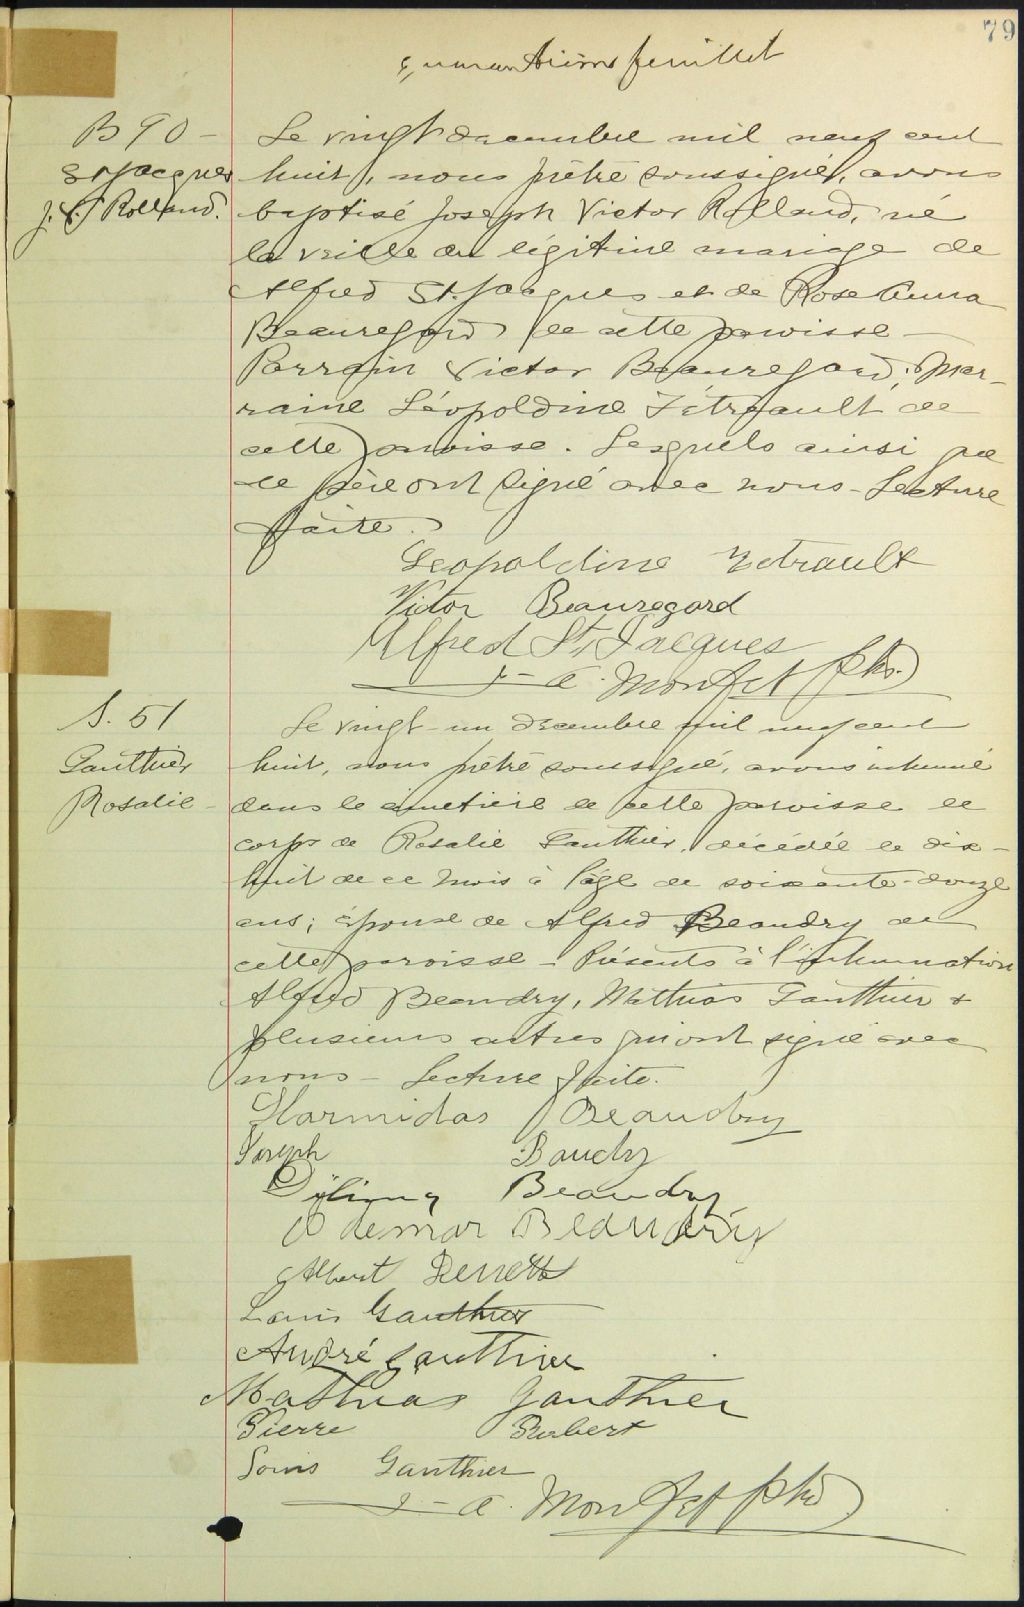 79
quarantième feuillet
B 90 -
St Jacques
J. V. Rolland.
Le vingt decembre mil neuf cent
huit, nous prêtre soussigné, avons
baptisé Joseph Victor Rolland, né
la veille du légitime mariage de
Alfred St. Jacques et de Rose Anna
Beauregard de cette paroisse -
Parrain Victor Beauregard; Mar-
raine Léopoldine Tétreault de
cette paroisse. Lesquels ainsi que
le père ont signé avec nous - Lecture
faite.
Leopoldine Tetrault
Victor Beauregard
Alfred St. Jacques
J - A. Monfet ptre.
S. 51
Gauthier
Rosalie -
Le vingt-un décembre mil neuf cent
huit, nous prêtre soussigné, avons inhumé
dans le cimetière de cette paroisse le
corps de Rosalie Gauthier, décédée le dix-
huit de ce mois à l'âge de soixante-douze
ans; épouse de Alfred Beaudry de
cette paroisse - Présents à l'inhumation
Alfred Beaudry, Mathias Gauthier &
plusieurs autres qui ont signé avec
nous - Lecture faite.
Harmidas Beaudry
Joseph Baudry
Beaudry
Ademar Beaudry
Albert
Louis Gauthier
André Gauthier
Mathias Gauthier
Pierre
Louis Gauthier
J - A. Monfet ptre